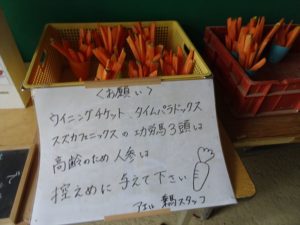 ＜お願い＞
ウイニングチケット、タイムパラドックス
スズカフェニックスの功労馬3頭は
高齢のため人参は
控えめに与えて下さい
スタッフ